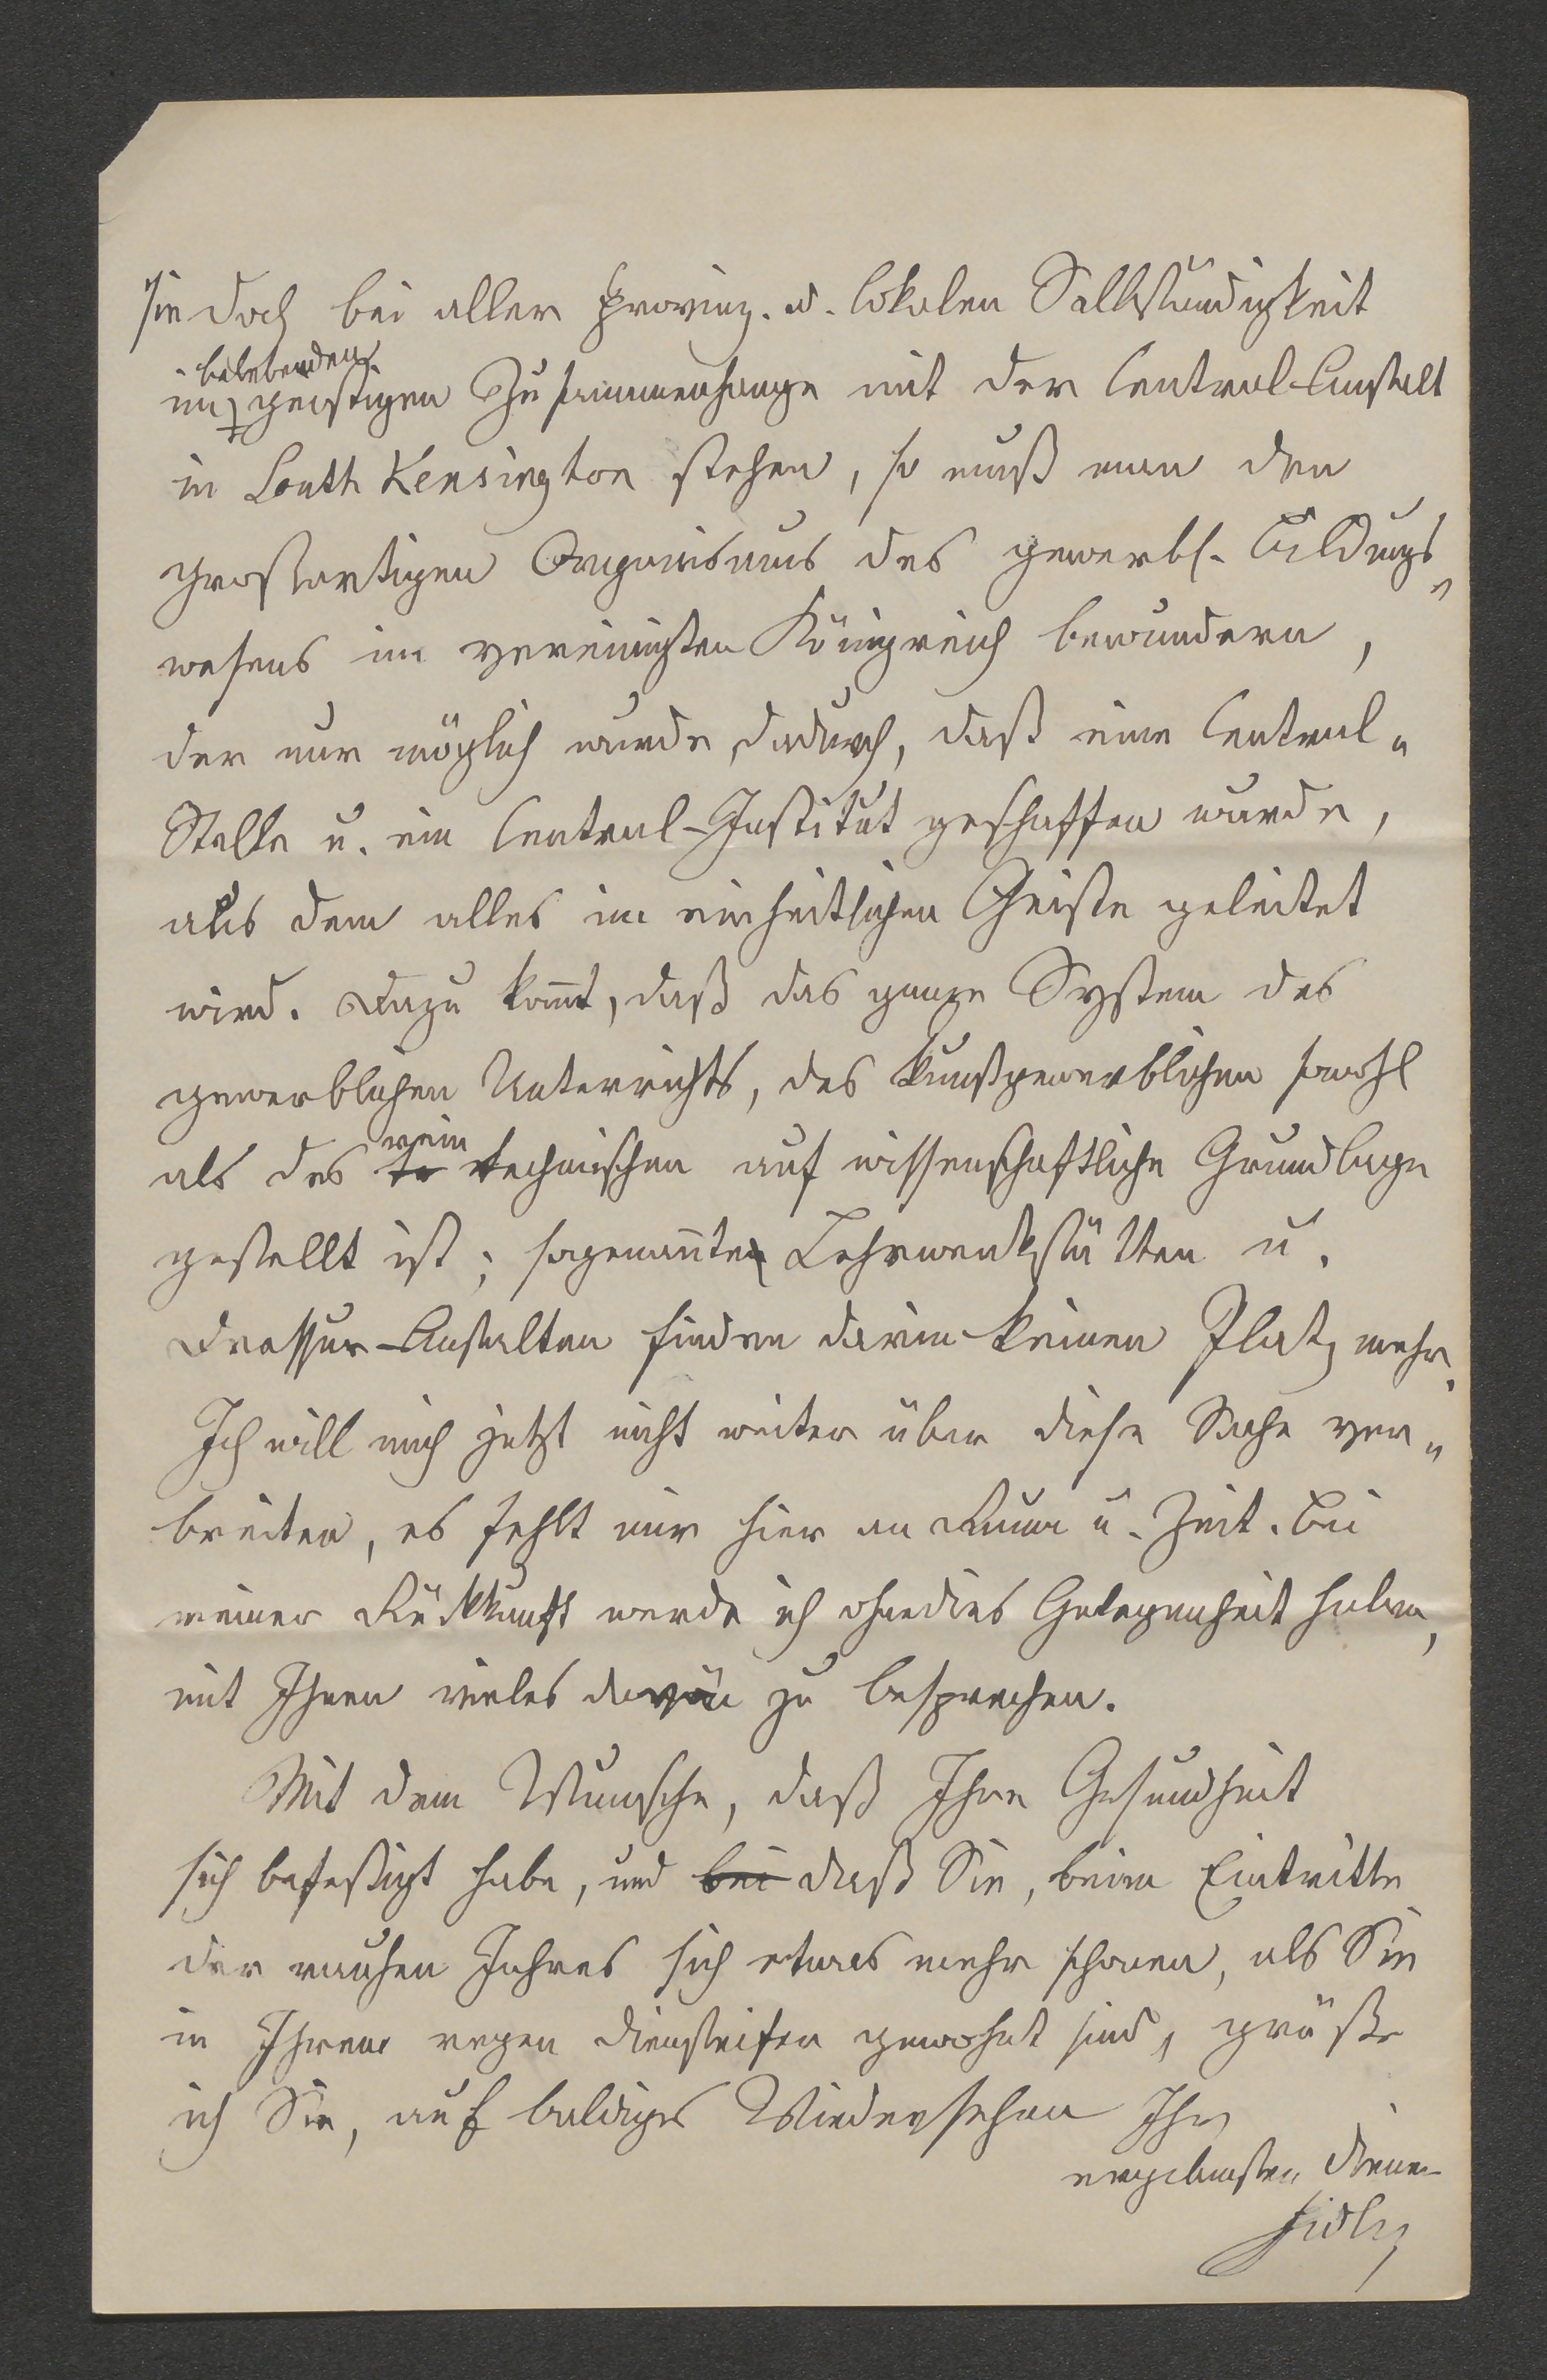 sie doch bei aller provinz. u. lokalen Selbständigkeit
belebenden
im geistigen Zusammenhange mit der Central-Anstalt
in South Kensington stehen, so muß man den
großartigen Organismus des gewerbl. Bildungs-
wesens im vereinigten Königreich bewundern,
der nur möglich wurde dadurch, daß eine Central-
Stelle u. ein Central-Institut geschaffen wurde,
aus dem alles im einheitlichen Geiste geleitet
wird. Dazu komt, daß das ganze System des
gewerblichen Unterrichts, des kunstgewerblichen sowohl
rein
als des te technischen auf wissenschaftliche Grundlage
gestellt ist; sogenannte Lehrwerkstätten u.
Dressur-Anstalten finden darin keinen Platz mehr.
Ich will mich jetzt nicht weiter über diese Sache ver-
breiten, es fehlt mir hier an Raum u. Zeit. Bei
meiner Rückkunft werde ich ohnedies Gelegenheit haben,
mit Ihnen vieles davon zu besprechen.
Mit dem Wunsche, daß Ihre Gesundheit
sich befestigt habe, und bei daß Sie, beim Eintritte
der rauhen Jahres sich etwas mehr schonen, als Sie
in Ihrem regen Diensteifer gewohnt sind, grüße
ich Sie, auf baldiges Wiedersehen Ihr
ergebenster Diener